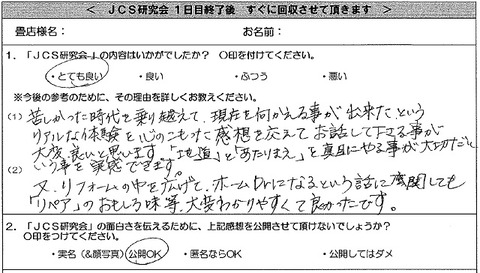 ＜ ＪＣＳ研究会１日目終了後　すぐに回収させて頂きます ＞
畳店様名：　お名前：
1．「ＪＣＳ研究会」の内容はいかがでしたか？　〇印を付けてください。
・とても良い　・良い　・ふつう　・悪い
※今後の参考のために、その理由を詳しくお教えください。
(1) 苦しかった時代を乗り越えて、現在を何かえる事が出来たという
リアルな体験を心のこもった感想を応えてお話して下さる事が
大変良いと思います。「地道」と「あたりまえ」を真面にやる事が大切だと
いう事を実感できます。
(2) 又、リフォームの中を広げて、ホームDrになるという話に展開しても
「リペア」のおもしろ味等、大変わかりやすくて良かったです。
2．「ＪＣＳ研究会」の面白さを伝えるために、上記感想を公開させて頂けないでしょうか？
〇印をつけてください。
・実名（&顔写真）公開OK　・匿名ならOK　・公開してはダメ